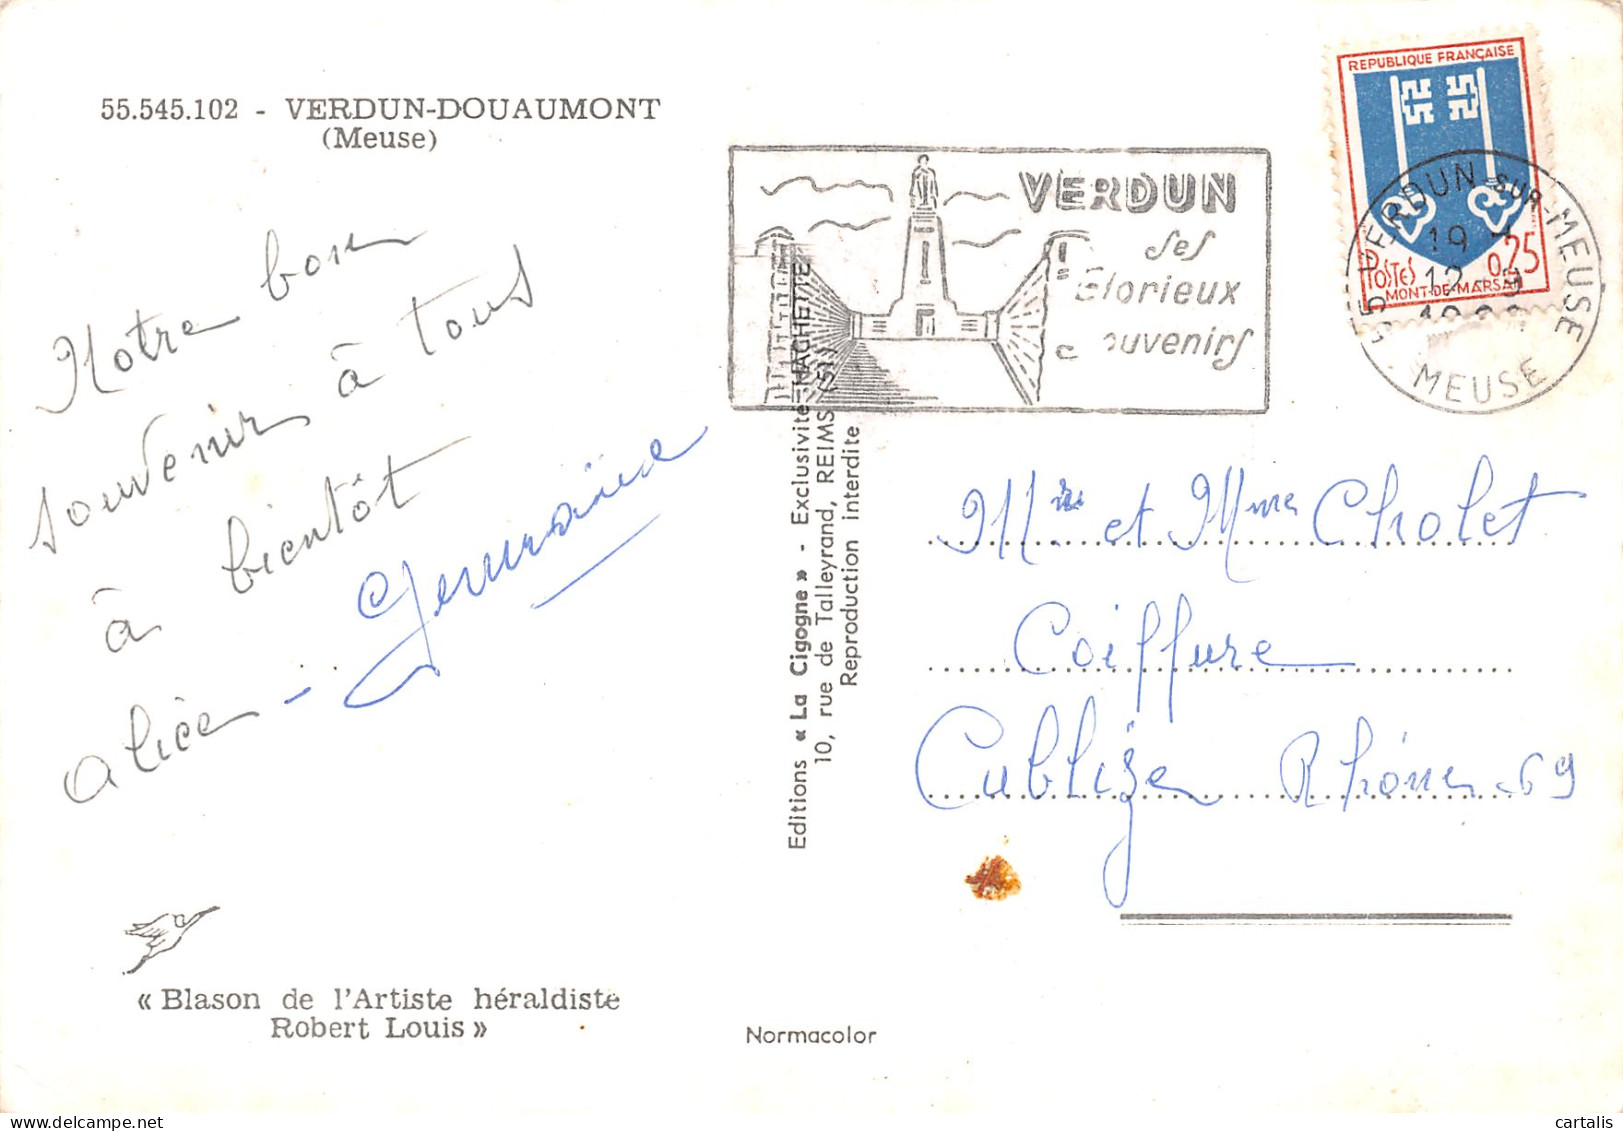 55.545.102 - VERDUN-DOUAUMONT
(Meuse)
Notre bon
souvenir à tous
à bientôt
alice - Germaine
« Blason de l'Artiste héraldiste
Robert Louis »
Normacolor
Editions « La Cigogne » - Exclusivité HACHETTE
10, rue de Talleyrand, REIMS (51)
Reproduction interdite
VERDUN
ses
Glorieux
souvenirs
REPUBLIQUE FRANÇAISE
POSTES 0,25
MONT-DE-MARSAN
55 VERDUN-SUR-MEUSE
19 -
12 - 9
MEUSE
Mr et Mme Cholet
Coiffure
Cublize Rhône 69
cartalis